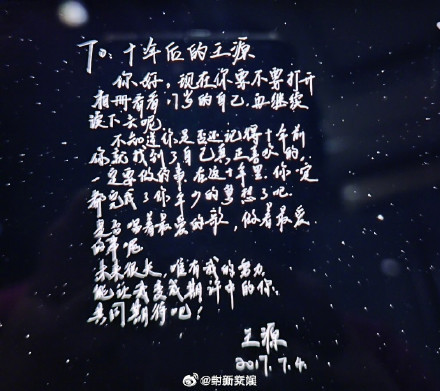 To: 十年后的王源
你好,现在你要不要打开
相册看看17岁的自己,再继续
读下去呢
不知道你是否还记得十年前
你就找到了自己真正喜欢的,
一定要做的事,在这十年里,你一定
都完成了你年少的梦想了吧
是否唱着最爱的歌,做着最爱
的事呢
未来很大,唯有我的努力
能让我变成期许中的你
共同期待吧!
王源
2017.7.4
@新京娱